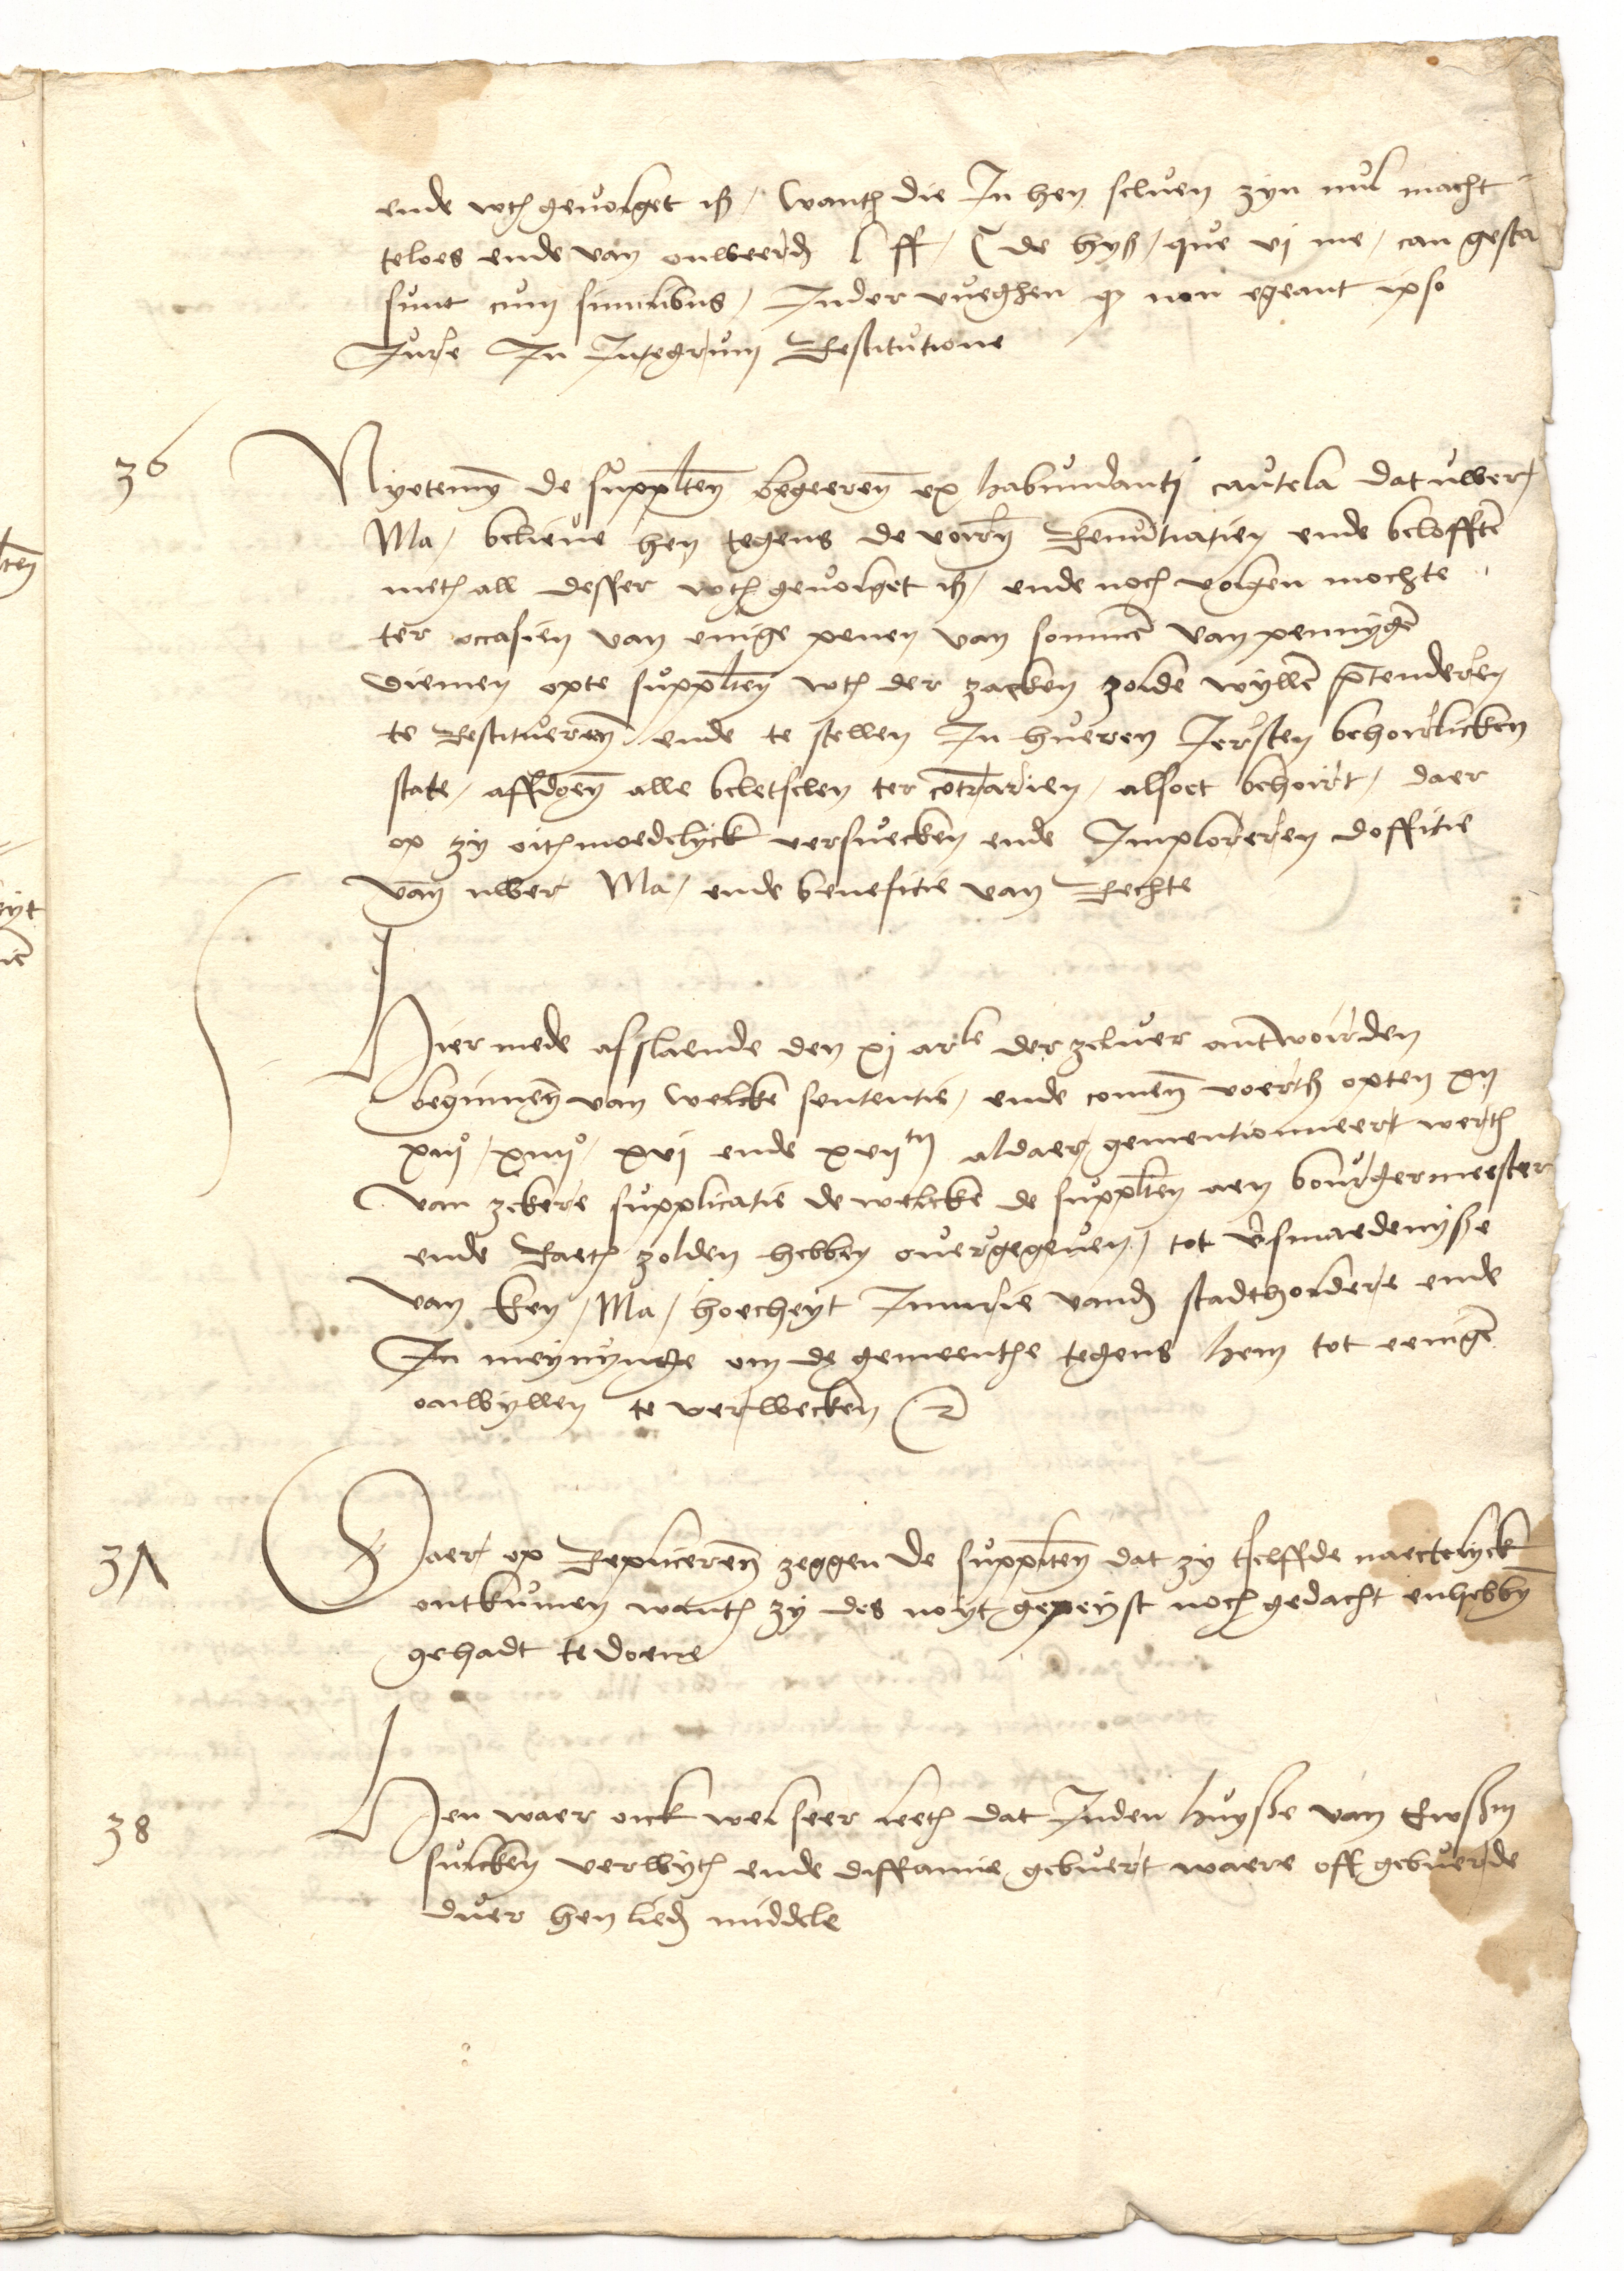 ende wth gevolget is / want die In hen seluen zyn nul macht
teloes ende van onweerd l ff / C de hys / que vi me / cau gesta
sunt cum similibus / Inder vueghen q non egeant ipso
Jure In Integrum Restitutione
36 Nyetemyn de supplten begeeren ex habundanti cautela dat uwer
Ma / believe hen tegens de voirn Renutiatien ende belofften
meth all desser wth gevolget is / ende noch volgen mochte
ter occasien van enige penen van sommen van pennygen
diemen opte supplten wth der zacken zolde wyllen ptenderen
te Restitueren ende te stellen In hueren Iersten behoirlicken
state / affdoen alle beletselen ter cotrarien / alsoet behoirt / daer
op zy oithmoedelyck versuecken ende Imploreren doffitie
van uwer Ma / ende benefitie van Rechte
Hier mede afslaende den xj arle der zeluer antwoirden
beginnen van welcke sententie / ende comen voerts opten xij
xiijo / xiiijo / xvj ende xvijtn aldaer gementionneert werth
van zekere supplicatie de welcke de supplten aen bourgermeester
ende Raeth zolden hebben ouergegeuen / tot vsmaedenysse
van Key / Ma / hoecheyt Iniurie vand stadtholdere ende
In meynynge om de gemeenthe tegens hem tot eenigen
onwyllen te verwecken
37 Daer op Repliceren zeggen de supplten dat zy tselffde naectelyck
ontkennen wanth zy des noyt gepeyst noch gedacht enhebben
gehadt te doene
38 Hen waer oick wel seer leeth dat Inden huysse van
sulcken verwyth ende diffamie gebuert waere off gebuerde
duer hen lied middele